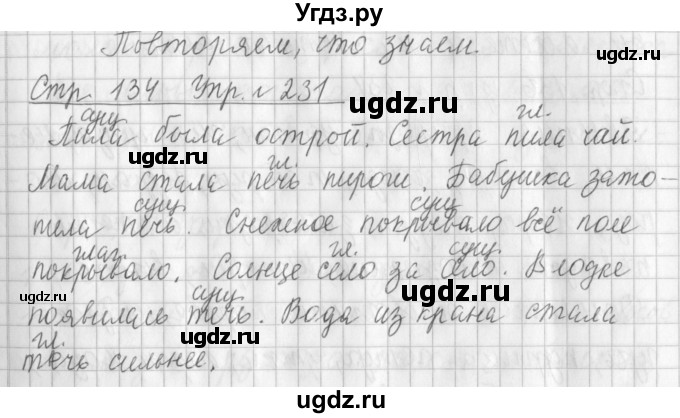 Угдз.ру
Повторяем, что знаем.
Стр. 134 Упр. № 231
сущ. гл.
Пила была острой. Сестра пила чай.
гл.
Мама стала печь пироги. Бабушка зато-
сущ. сущ.
пила печь. Снежное покрывало всё поле
глаг. гл. сущ.
покрывало. Солнце село за село. В лодке
сущ.
появилась течь. Вода из крана стала
гл.
течь сильнее.
ugdz.ru
ugdz.ru
ugdz.ru
ugdz.ru
ugdz.ru
ugdz.ru
ugdz.ru
ugdz.ru
ugdz.ru
ugdz.ru